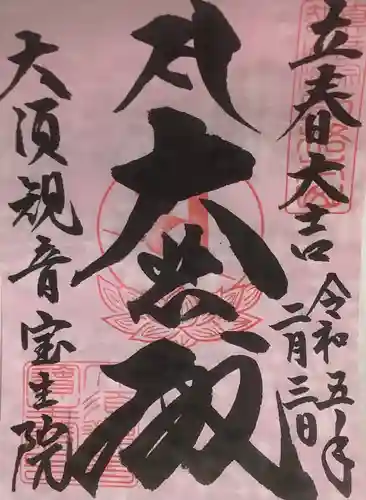 立春大吉
令和五年
二月三日
大悲殿
大須観音
宝生院